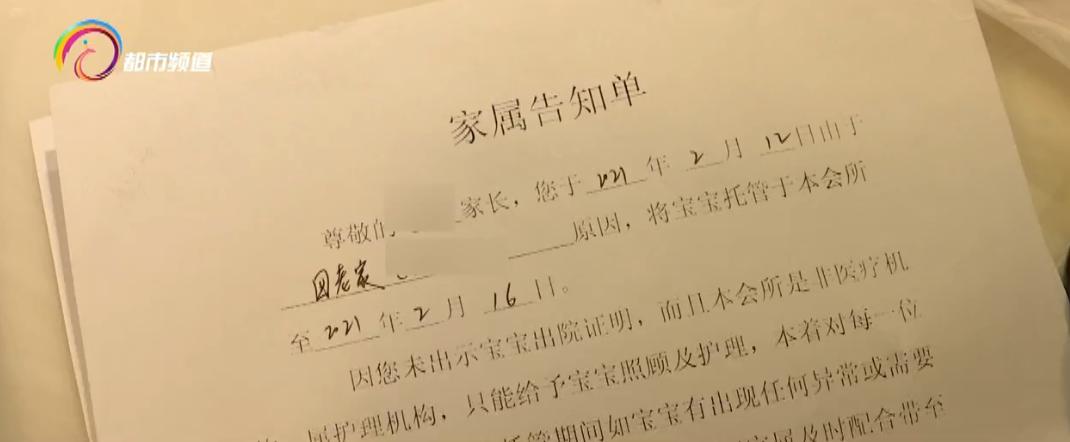 都市频道
家属告知单
尊敬的 家长，您于 2021 年 2 月 12 日由于
回老家 原因，将宝宝托管于本会所
至 2021 年 2 月 16 日。
因您未出示宝宝出院证明，而且本会所是非医疗机
属护理机构，只能给予宝宝照顾及护理，本着对每一位
托管期间如宝宝有出现任何异常或需要
家属及时配合带至